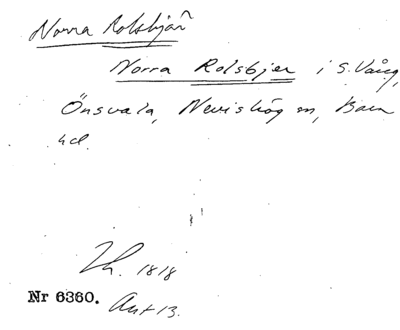 Norra Rolsbjär
Norra Rolsbjer i S. Vång,
Önsvala, Nevishög sn, Bara
hd.
Lh. 1818
Nr 6360. Akt 13.